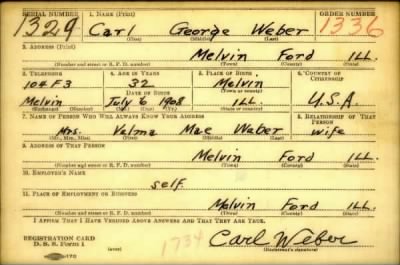 SERIAL NUMBER 1. NAME (Print) ORDER NUMBER
329 Carl George Weber 1336
(First) (Middle) (Last)
2. ADDRESS (Print)
Melvin Ford ILL.
(Number and street or R. F. D. number) (Town) (County) (State)
3. TELEPHONE 4. AGE IN YEARS 5. PLACE OF BIRTH 6. COUNTRY OF CITIZENSHIP
104 F3 32 Melvin
DATE OF BIRTH (Town or county)
Melvin July 6 1908 ILL. U.S.A.
(Exchange) (Number) (Mo.) (Day) (Yr.) (State or country)
7. NAME OF PERSON WHO WILL ALWAYS KNOW YOUR ADDRESS 8. RELATIONSHIP OF THAT PERSON
Mrs. Velma Mae Weber Wife
(Mr., Mrs., Miss) (First) (Middle) (Last)
9. ADDRESS OF THAT PERSON
Melvin Ford ILL.
(Number and street or R. F. D. number) (Town) (County) (State)
10. EMPLOYER'S NAME
self
11. PLACE OF EMPLOYMENT OR BUSINESS
Melvin Ford ILL
(Number and street or R. F. D. number) (Town) (County) (State)
I AFFIRM THAT I HAVE VERIFIED ABOVE ANSWERS AND THAT THEY ARE TRUE.
REGISTRATION CARD
D. S. S. Form 1 (over) 1734 Carl Weber
(Registrant's signature)